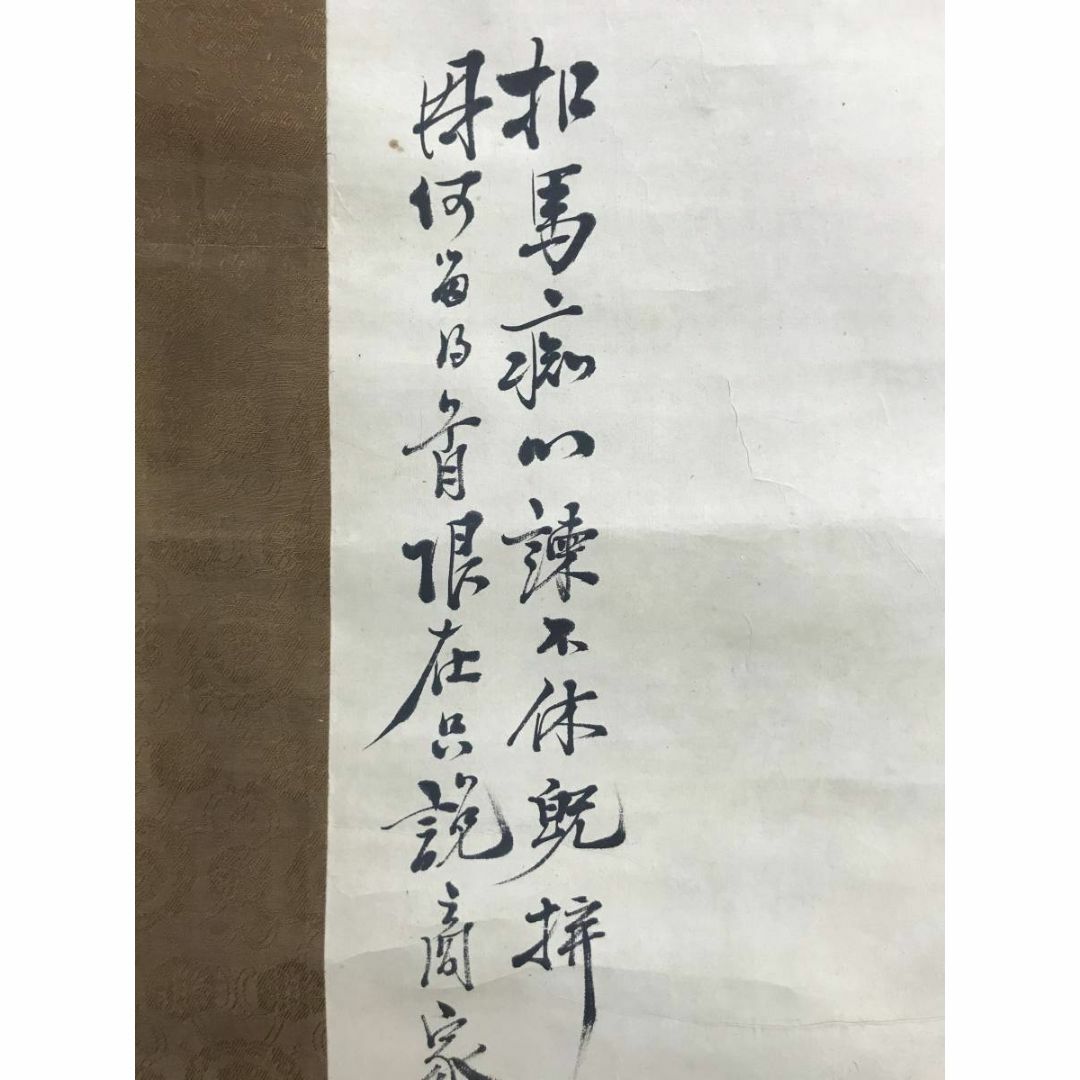 扣馬痴心諫不休既拼
因何留得首陽在只說商家